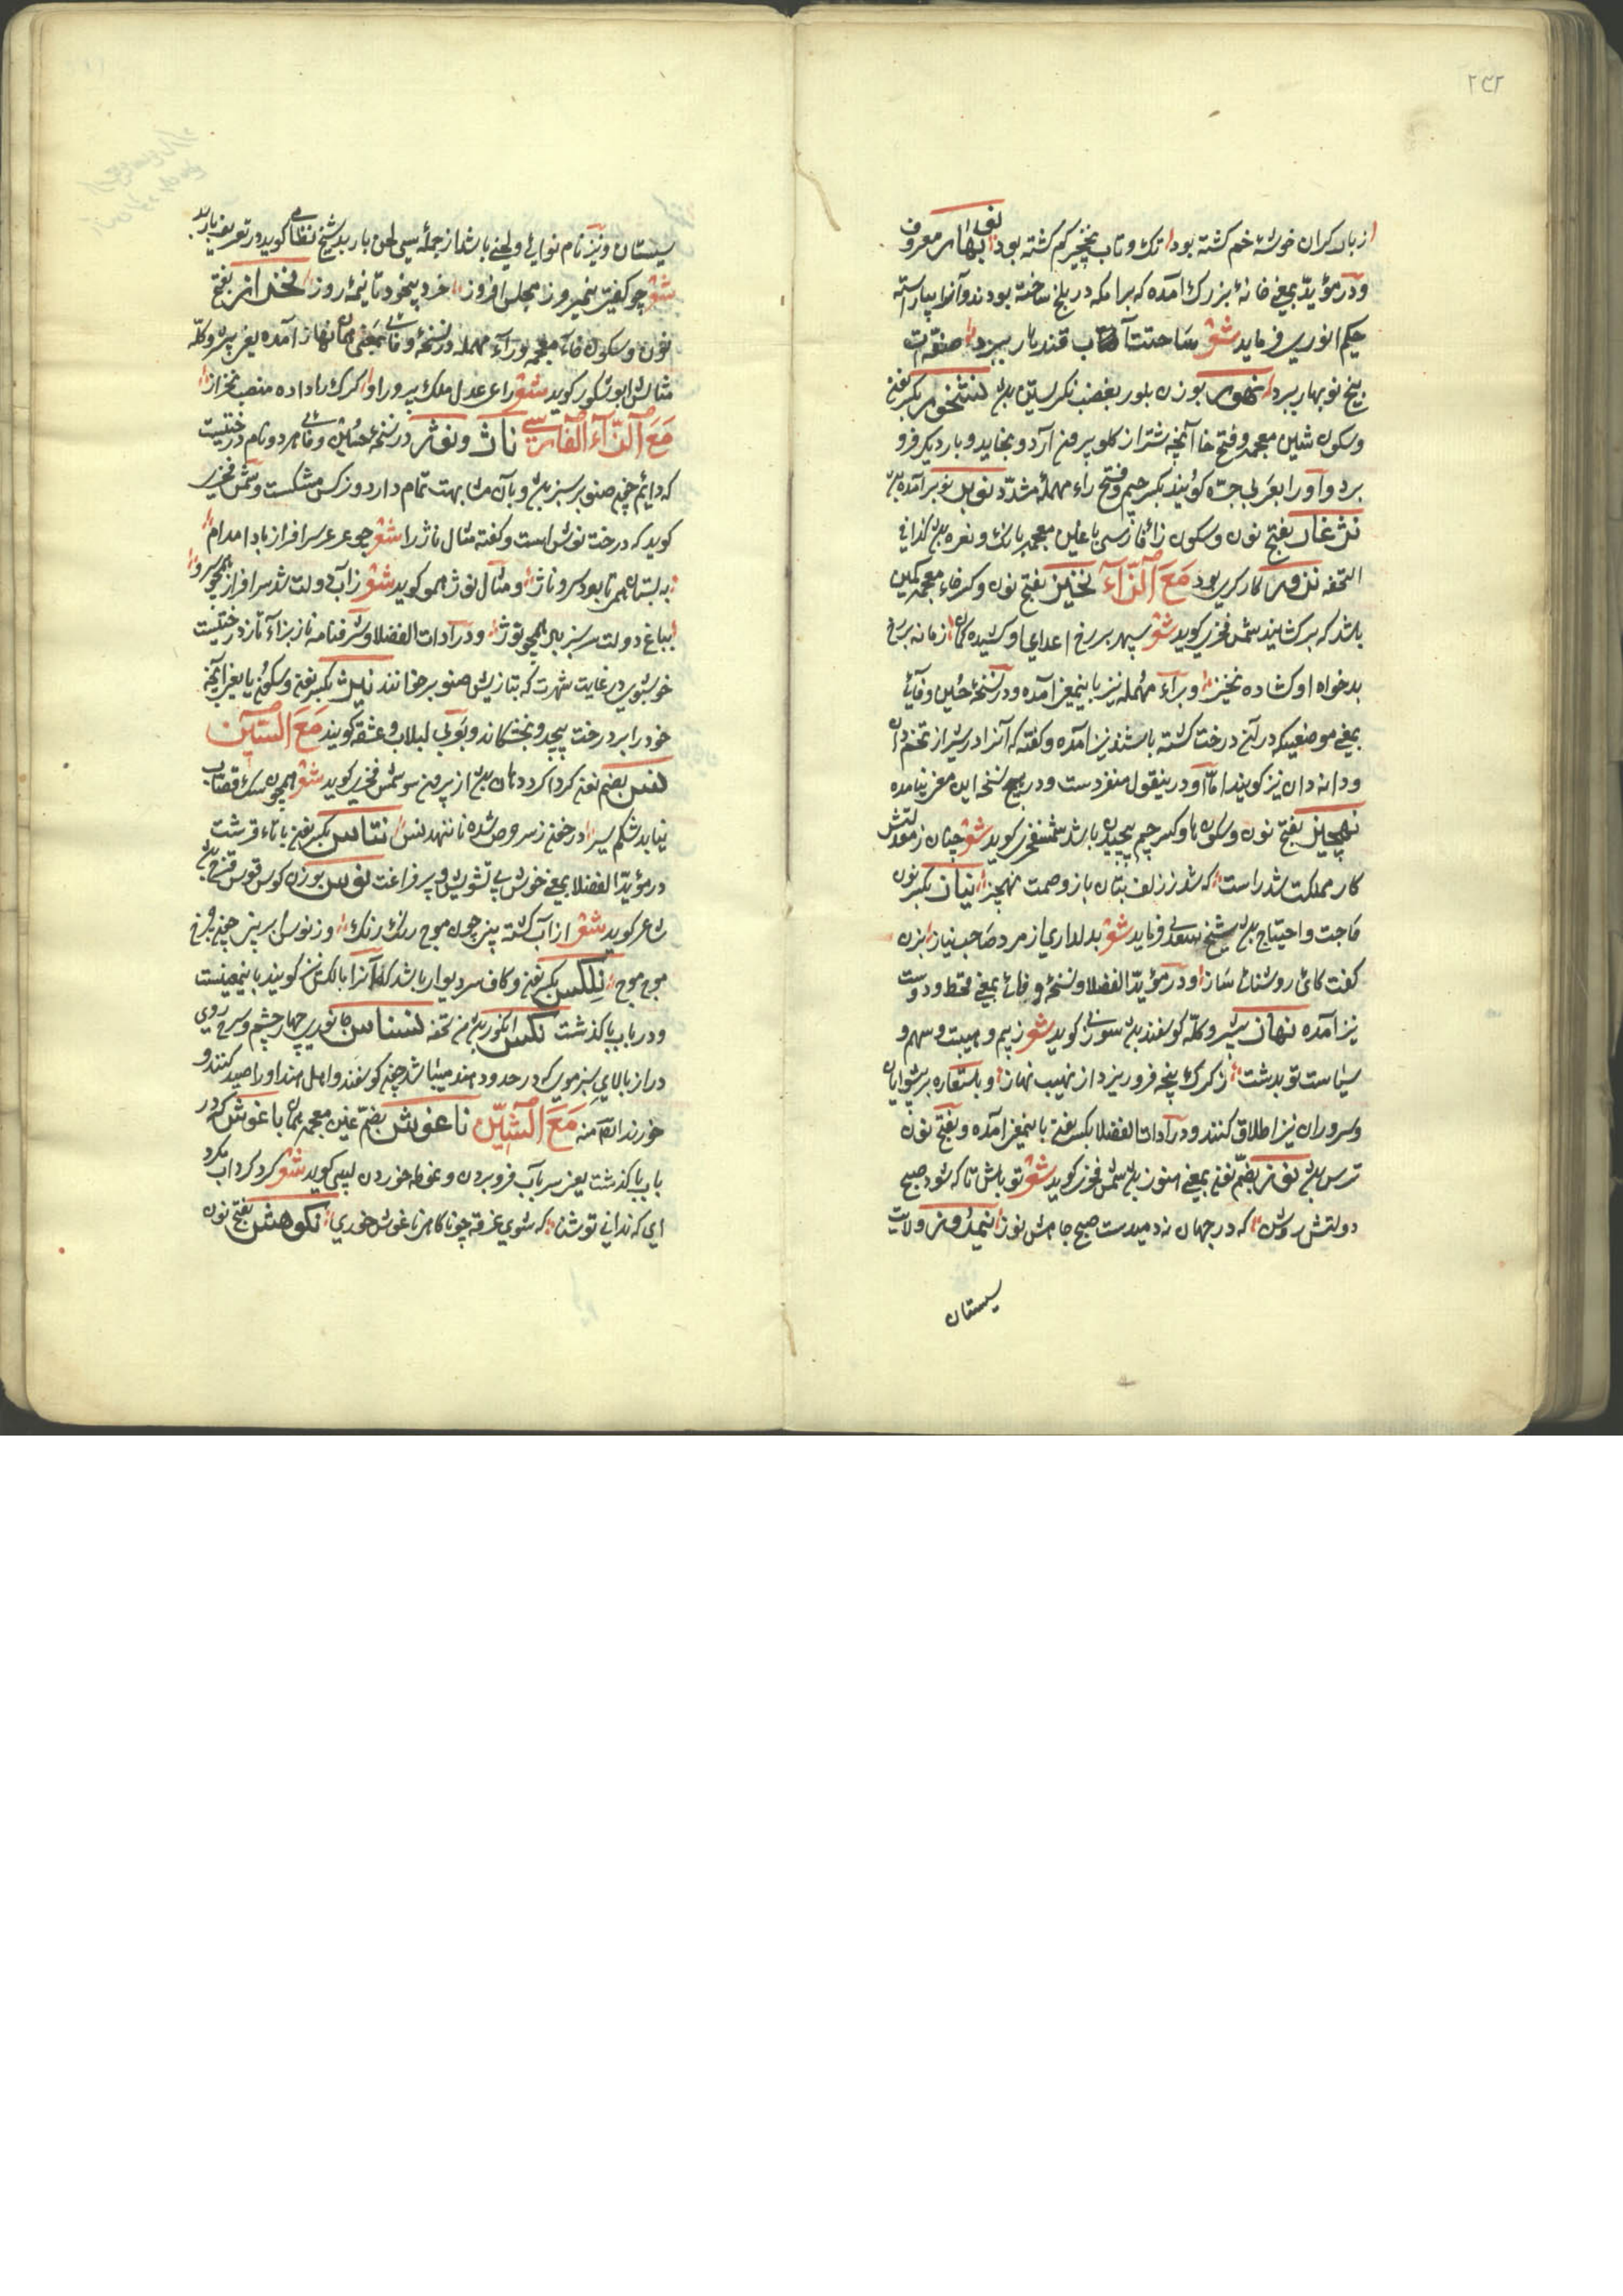 ۲۳۲
از بار کران خوشه خم کشته بود تک و تاب نخچیر کم کشته بود نوبهار معروف
و در مؤید بمعنی خانهٔ بزرک آمده که برامکه در بلخ ساخته بودند و آنرا بیاراسته
حکیم انوری فرماید شعر ساحتت آب قندهار ببرد صفهٔات
بیخ نوبهار ببرد نهور بوزن بلور بغضب نکریستن بود نشخور بکسر نون
و سکون شین معجمه و فتح خا آنچه شتر از کلو برون آرد و بخاید و بار دیکر فرو
برد و آورا بعربی جره کویند بکسر جیم و فتح راء مهملهٔ مشدد نوبر آمده
نژغار بفتح نون و سکون زاء فارسی با غین معجمه بانک و نعره بود کذا فی
التحفه نزور کارکری بود مَعَ الزّآءَ نخیز بفتح نون و کسر خاء معجمه کمین
باشد که بر کشایند شمس فخری کوید شعر سپهر بر رخ اعدای او کشیده کمان زمانه بر
بدخواه او کشاده نخیز و براء مهمله نیز باینمعنی آمده و در نسخهٔ حسین وفائی
بمعنی موضعیکه در آن درخت کشته باشند نیز آمده و کفته که آنرا در شیراز تخمدان
و دانه دان نیز کویند اما او درینقول منفردست و در هیچ نسخه این معنی نیامده
نهچیز بفتح نون و سکون ها و کسر جیم پیچیدن باشد شمس فخری کوید شعر چنان ز معدلتش
کار مملکت شد راست که شد ز زلف بتان باز وصمت نهچیز نیاز بکسر نون
حاجت و احتیاج بود شیخ سعدی فرماید شعر بدلداری از مرد صاحب نیاز بزن
کفت کای روشنائی ساز و در مؤید الفضلا و نسخهٔ وفائی بمعنی قحط و دوست
نیز آمده نهاز پیشرو کلهٔ کوسفند بود سوزنی کوید شعر ز بیم و هیبت و سهم و
سیاست تو بدشت ز کرک پنجه فرو ریزد از نهیب نهاز و باستعاره بر پیشوایان
و سروران نیز اطلاق کنند و در آدات الفضلا بکسر نون باینمعنی آمده و بفتح نون
ترس بود نوز بضم نون بمعنی هنوز بود شمس فخری کوید شعر تو باش تا که شود صبح
دولتش روشن که در جهان ندمیدست صبح جاهش نوز نیمروز ولایت
سیستان
سیستان و نیز نام نوایی و لحنی باشد از جملهٔ سی لحن باربد شیخ نظامی کوید در تعریف باربد
شعر چو کفتی نیمروز مجلس افروز خرد بیخود تا نیمهٔ روز نخراز بفتح
نون و سکون خاء معجمه و راء مهمله در نسخهٔ وفائی بمعنی همان نهاز آمده یعنی پیشرو کله
مثالش ابو شکور کوید شعر راعی عدل ملک پرور او کرک را داده منصب نخراز
مَعَ الزّآءَ الفارسی ناژ و نوژ در نسخهٔ حسین وفائی هر دو نام درختیست
که دایم چون صنوبر سبز بود و بآن مشابهت تمام دارد و زکش مشکست و شمس فخری
کوید که درخت نوش است و کفته مثال ناژ را شعر چو عرعر سرافراز بادا مدام
به بستان همر تا بود سرو ناژ و مثال نوژ همو کوید شعر ز آب دولت شد سرافراز همچو سرو
بباغ دولت سرسبز باد همچو نوژ و در آدات الفضلا و شرفنامه ناز بزاء تازی درختیست
خوشبوی در غایت شهرت که بتازیش صنوبر خوانند نیژ بکسر نون و سکون یا یعنی آنچه
خود را بر درخت پیچد و بخشکاند و بعربی لبلاب و عشقه کویند مَعَ السّین
نفس بضم نون کردا کرد دهان بود از برون سو شمس فخری کوید شعر همچون سک قصاب
نیاید شکم سیر نتاس بکسر نون با تاء قرشت
در مؤید الفضلا بمعنی خوش بی تشویش و پر فراغت نوس بوزن کوس قوس قزح بود
شاعر کوید شعر از آب کشته پنر چون موج رنک رنک وز نوس ابر
موج موج نلکس بکسر نون و کاف سر دیوار باشد که آنرا بالکن نیز کویند باینمعنیست
و در باب با کذشت نکس انکور بود من تحفه نسناس جانوری چهار چشم و سرخ روی
دراز بالای سبز موی که در حدود هند میباشد چون کوسفند و اهل هند او را صید کنند و
خورند انهٰ منه مَعَ الشّین ناغوش بضم غین معجمه همان باغوش که در
باب با کذشت یعنی سر بآب فرو بردن و غوطه خوردن لبیبی کوید شعر کرد کرداب مکرد
ای که ندانی تو شنا که شوی غرقه چو ناکاهی ناغوش خوری نکوهش بفتح نون